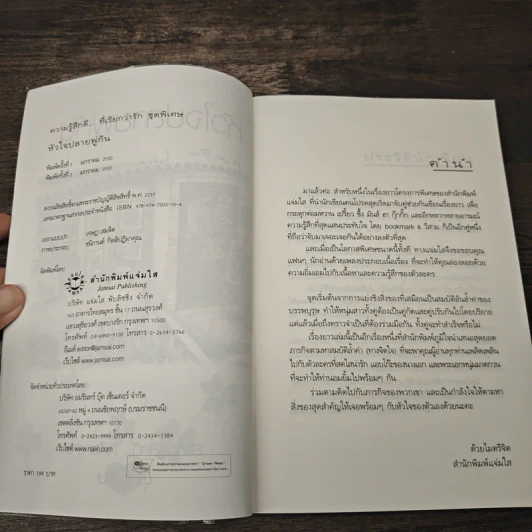 ความรู้สึกดี... ที่เรียกว่ารัก ชุดพิเศษ
หัวใจปลายพู่กัน
พิมพ์ครั้งที่ 1 มกราคม 2550
พิมพ์ครั้งที่ 2 มกราคม 2550
สงวนลิขสิทธิ์ตามพระราชบัญญัติลิขสิทธิ์ พ.ศ. 2537
เลขมาตรฐานสากลประจำหนังสือ ISBN
ออกแบบปก เจษฎา สมจิต
ภาพประกอบ
จัดพิมพ์โดย
สำนักพิมพ์แจ่มใส
Jamsai Publishing
บริษัท แจ่มใส พับลิชชิ่ง จำกัด
อาคารไทยสมุทร ชั้น 17 ถนนสุรวงศ์
แขวงสุริยวงศ์ เขตบางรัก กรุงเทพฯ 10500
โทรศัพท์ โทรสาร
อีเมล์ editor@jamsai.com
เว็บไซต์ www.jamsai.com
จัดจำหน่ายทั่วประเทศโดย
บริษัท อมรินทร์ บุ๊ค เซ็นเตอร์ จำกัด
ถนนชัยพฤกษ์ (บรมราชชนนี)
เขตตลิ่งชัน กรุงเทพฯ 10170
โทรศัพท์ 0-2423-9999 โทรสาร
เว็บไซต์ www.naiin.com
ราคา 199 บาท
คำนำ
มาแล้วค่ะ สำหรับหนึ่งในเรื่องยาวโครงการพิเศษของสำนักพิมพ์
แจ่มใส ที่นำนักเขียนคนโปรดสุดเริดมาจับคู่ช่วยกันเขียนเรื่องยาว เพื่อ
กระตุกต่อมหวาน เปรี้ยว ซึ้ง มันส์ ฮา กุ๊กกิ๊ก และอีกหลากหลายอารมณ์
ความรู้สึกที่สุดแสนประทับใจ โดย bookmark & วิสาณ ก็เป็นอีกคู่หนึ่ง
ที่ถือว่าจับมาเจอะเจอกันได้อย่างลงตัวที่สุด
และเมื่อเป็นโอกาสพิเศษขนาดนี้ทั้งที ทางแจ่มใสจึงขอชวนคุณ
แฟนๆ นักอ่านด้วยเพลงประกอบเนื้อเรื่อง ที่จะทำให้คุณล่องลอยด้วย
ความอิ่มเอมไปกับเนื้อหาและความรู้สึกของตัวละคร
จุดเริ่มต้นจากการแย่งชิงสิ่งของที่เสมือนเป็นสมบัติอันล้ำค่าของ
บรรพบุรุษ ทำให้หนุ่มสาวทั้งคู่ต้องเป็นคู่กัดและคู่ปรับกันไปโดยปริยาย
แต่แล้วเมื่อถึงคราวจำเป็นที่ต้องร่วมมือกัน ทั้งคู่จะทำสำเร็จหรือไม่
เรื่องยาวเล่มนี้เป็นอีกเรื่องหนึ่งที่สำนักพิมพ์ภูมิใจนำเสนอสุดยอด
ภารกิจตามหาสมบัติล้ำค่า (ทางจิตใจ) ที่จะพาคุณผู้อ่านทุกท่านเพลิดเพลิน
ไปกับตัวละครที่สดใสน่ารัก แอบโก๊ะกังของนางเอก และพระเอกหนุ่มมาดกวน
ที่จะทำให้ท่านอมยิ้มไปพร้อมๆ กัน
ร่วมตามติดไปกับภารกิจของพวกเขา และเป็นกำลังใจให้ตามหา
สิ่งของสุดสำคัญให้เจอพร้อมๆ กับหัวใจของตัวเองด้วยนะคะ
ด้วยไมตรีจิต
สำนักพิมพ์แจ่มใส